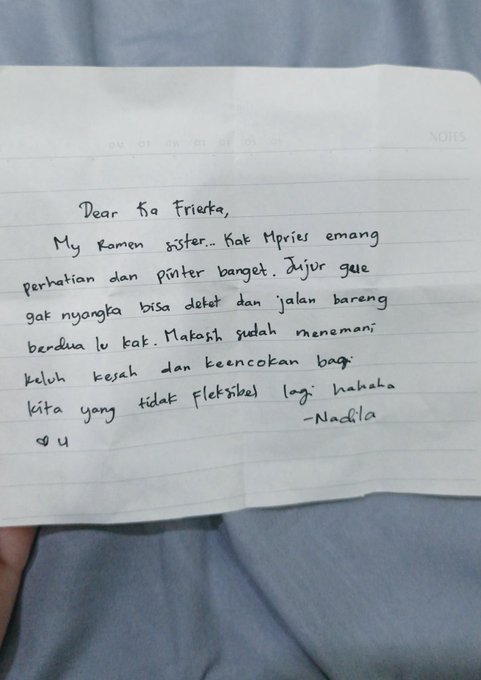 NOTES
Dear Ka Frieska,
My Ramen sister... Kak Mpries emang
perhatian dan pinter banget. Jujur gue
gak nyangka bisa deket dan jalan bareng
berdua lu kak. Makasih sudah menemani
keluh kesah dan keencokan bagi
kita yang tidak fleksibel lagi hahaha
-Nadila
♡ u